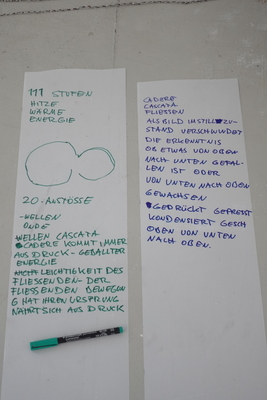 111 STUFEN
HITZE
WÄRME
ENERGIE
20-ANSTÖSSE
-WELLEN
ONDE
WELLEN CASCATA
CADERE KOMMT IMMER
AUS DRUCK-GEBALLTER
ENERGIE
LEICHTIGKEIT DES
FLIESSENDEN-DER
FLIESSENDEN BEWEGUN
G HAT IHREN URSPRUNG
NÄHRT SICH AUS DRUCK
CADERE
CASCATA
FLIESSEN
ALS BILD IM STILLZU-
STAND VERSCHWINDET
DIE ERKENNTNIS
OB ETWAS VON OBEN
NACH UNTEN GEFAL-
LEN IST ODER
VON UNTEN NACH OBEN
GEWACHSEN
GEDRÜCKT GEPRESST
KONDENSIERT GESCH
OBEN VON UNTEN
NACH OBEN.